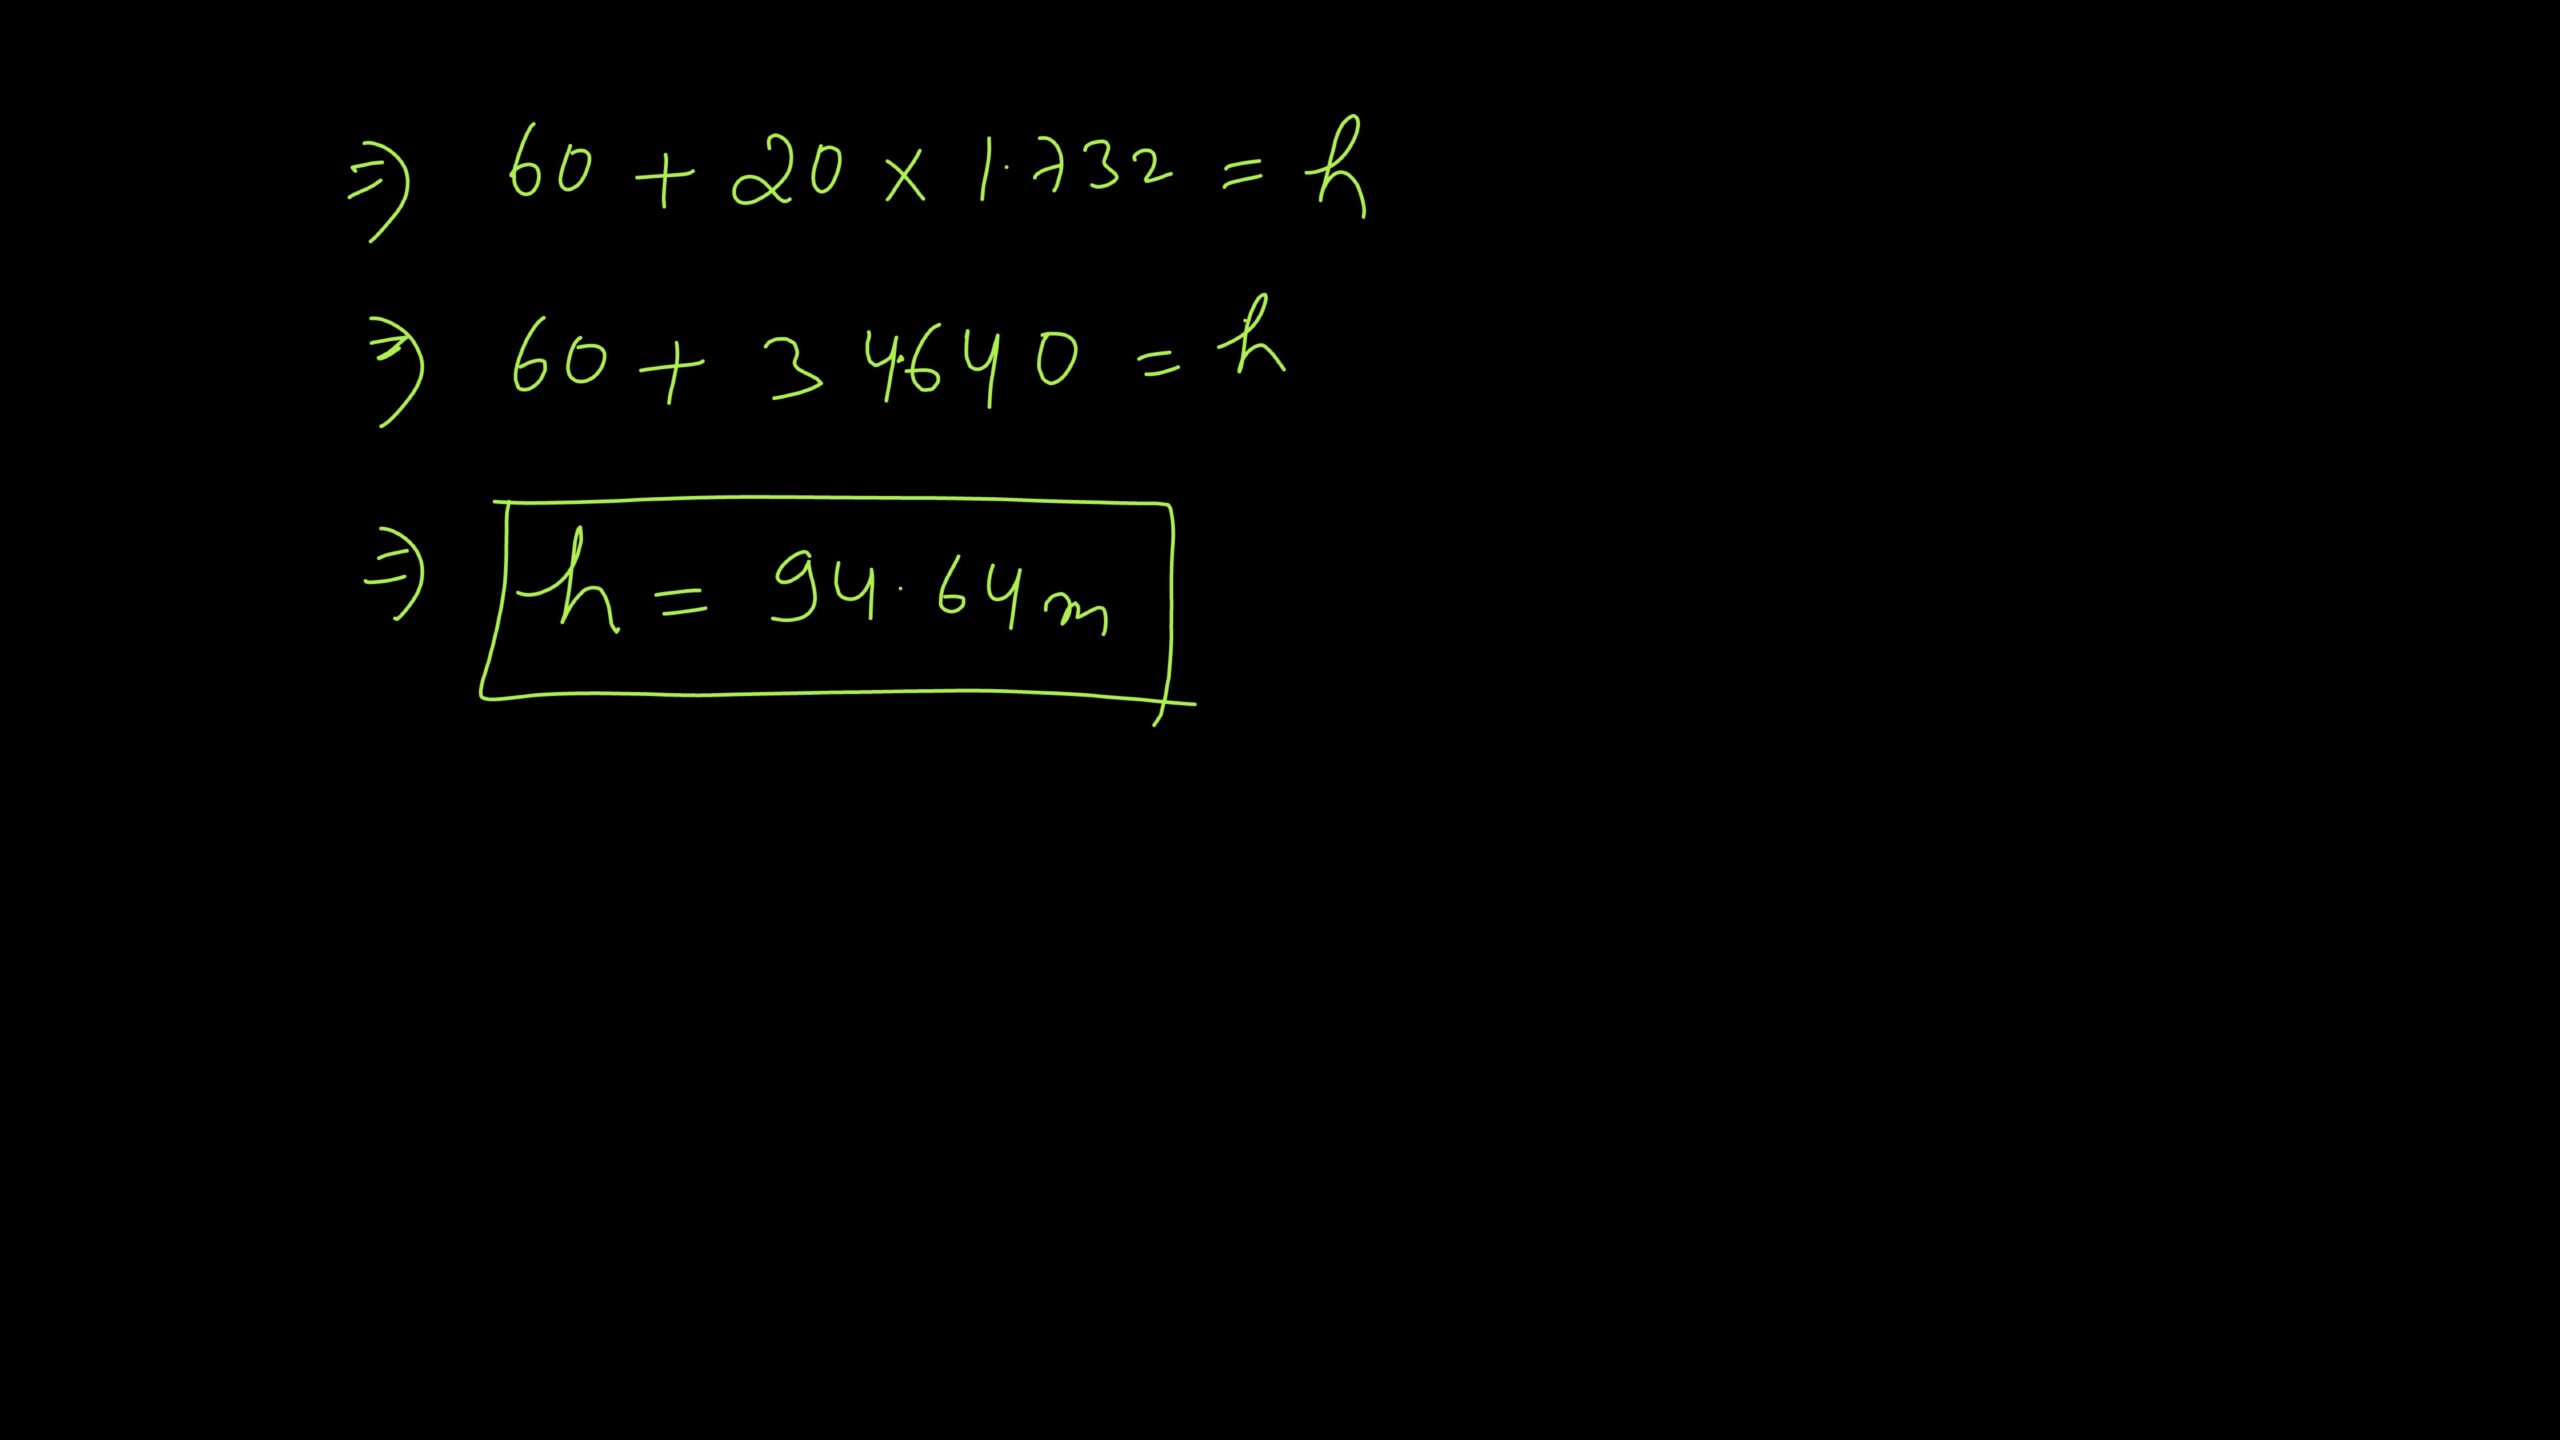 ⇒ 60 + 20 × 1.732 = h
⇒ 60 + 34.640 = h
⇒ h = 94.64m